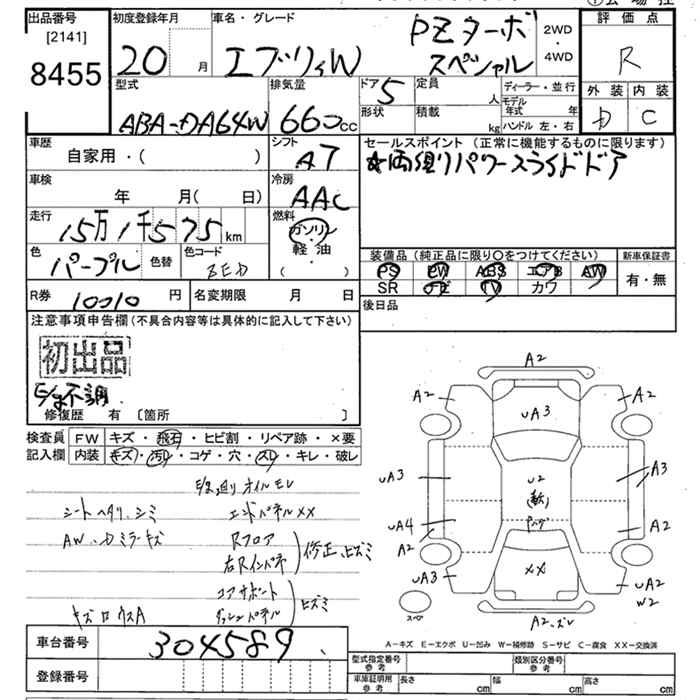 出品番号
[2141]
8455
初度登録年月
20 月
車名・グレード
エブリィW
PZターボ
スペシャル
2WD
・
4WD
評価点
R
外装 内装
D C
型式
ABA-DA64W
排気量
660cc
ドア 5
形状
定員 人
積載 kg
ディーラー・並行
モデル
年式 年
ハンドル 左・右
車歴
自家用・( )
シフト
AT
車検
年 月( 日)
冷房
AAC
走行
15万1千575km
燃料
ガソリン
・
軽油
( )
色
パープル
色替
色コード
ZED
R券 10010円
名変期限 月 日
セールスポイント(正常に機能するものに限ります)
☆両側パワースライドドア
装備品(純正品に限り○をつけてください)
PS PW ABS エアB AW
SR ナビ TV カワ
新車保証書
有・無
後日品
注意事項申告欄(不具合内容等は具体的に記入して下さい)
初出品
E/g不調
修復歴 有 〔箇所 〕
検査員
記入欄
FW キズ・飛石・ヒビ割・リペア跡・×要
内装 キズ・汚レ・コゲ・穴・スレ・キレ・破レ
E/g廻りオイルモレ
シートヘタリ、シミ
エンドパネルXX
AW、Dミラーキズ
Rフロア
右Rインパネ
修正、ヒズミ
コアサポート
ダッシュパネル
ヒズミ
キズ
A2
A2
A2
UA3
UA3
A3
U2
UA4
A2
A2
XX
UA3
UA2
W2
スペア
A2、ズレ
A-キズ E-エクボ U-凹み W-補修跡 S-サビ C-腐食 XX-交換済
車台番号
304589
登録番号
型式指定番号
参考
類別区分番号
参考
車庫証明用
参考
長さ cm
幅 cm
高さ cm